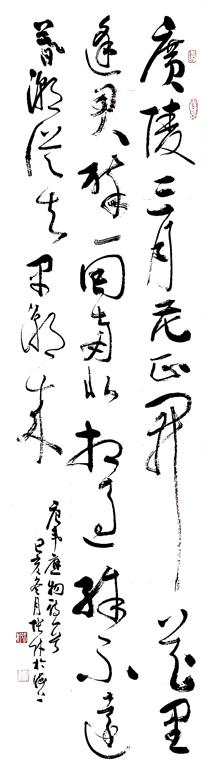 廣陵三月花正開花里
逢君醉一回南北相過殊不遠
暮潮從去早潮來
唐韋應物詩一首
己亥冬月於海上